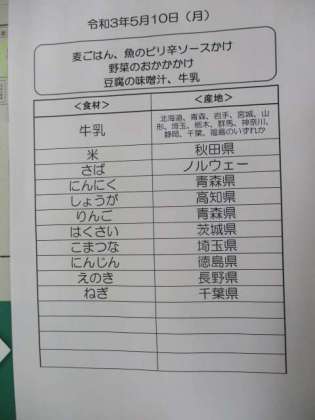 令和3年5月10日（月）
麦ごはん、魚のピリ辛ソースかけ
野菜のおかかかけ
豆腐の味噌汁、牛乳
＜食材＞ ＜産地＞
牛乳 北海道、青森、岩手、宮城、山
形、埼玉、栃木、群馬、神奈川、
静岡、千葉、福島のいずれか
米 秋田県
さば ノルウェー
にんにく 青森県
しょうが 高知県
りんご 青森県
はくさい 茨城県
こまつな 埼玉県
にんじん 徳島県
えのき 長野県
ねぎ 千葉県